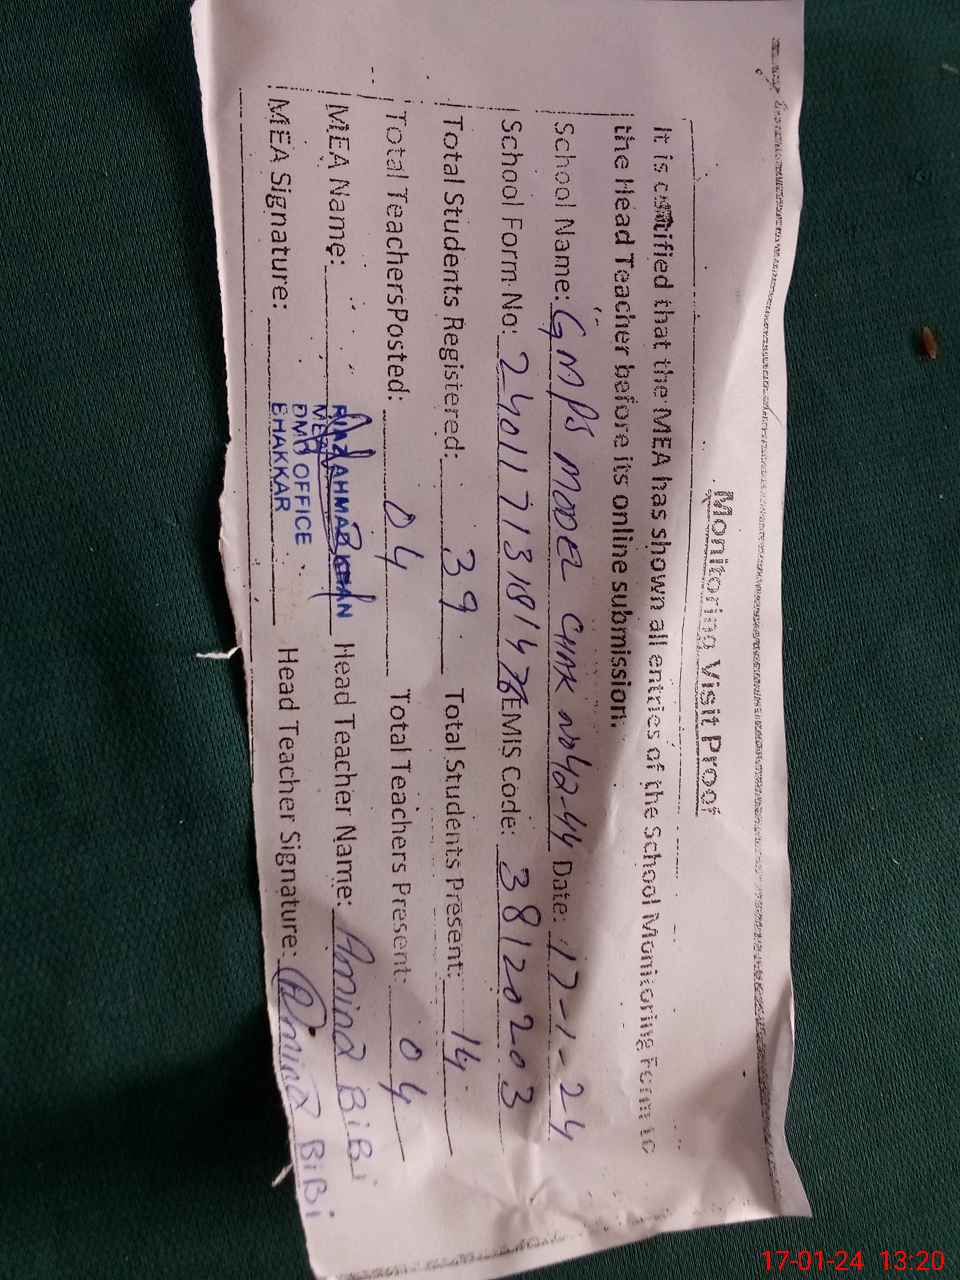 Monitoring Visit Proof
It is certified that the MEA has shown all entries of the School Monitoring Form to
the Head Teacher before its online submission.
School Name: GMPS MODEL CHAK NO 42-44 Date: 17-1-24
School Form No: EMIS Code: 38120203
Total Students Registered: 39 Total Students Present: 14
Total TeachersPosted: 04 Total Teachers Present 04
MEA Name: RIAZ AHMAD KHAN Head Teacher Name: Amina BiBi
MEA
MEA Signature: DMO OFFICE Head Teacher Signature: Amina BiBi
BHAKKAR
17-01-24 13:20